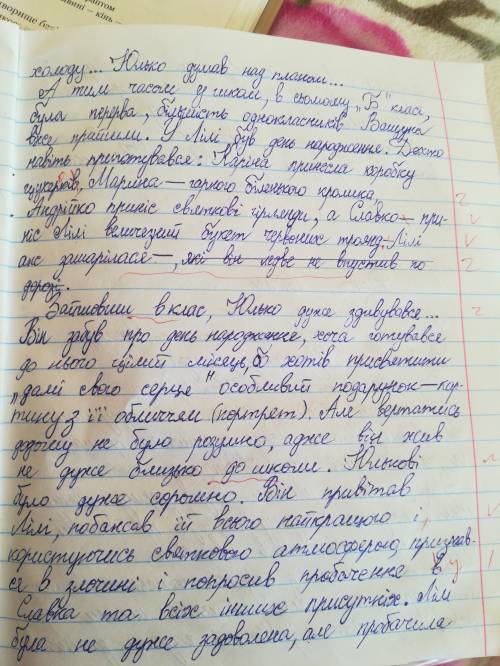 холоду... Юлько думав над планом...
А тим часом у школі, в сьомому „Б" класі,
була перерва, більшість однокласників Ващука
вже прийшли. У Лілі був день народження. Дехто
навіть пригатувався: Каріна принесла коробку
цукерок, Марина — гарного білянкого кролика,
Андрійко приніс святкові гірлянди, а Славко – при-
ніс Лілі величезний букет червоних троянд. Лілі
аж зашарілася—, які він ледве не впустив по
дорозі.
Зайшовши в клас, Юлько дуже здивувався...
Він забув про день народження, хоча готувався
до нього цілий місяць, бо хотів присвятити
„дамі свого серця" особливий подарунок — кар-
тину з її обличчям (портрет). Але вертатись
додому не було розумно, адже він жив
не дуже близько до школи. Юлькові
було дуже соромно. Він привітав
Лілі, побажав їй всього найкращого і,
користуючись святковою атмосферою, признав-
ся в злочині і попросив пробачення в
Славка та всіх інших присутніх. Лілі
була не дуже задоволена, але пробачила